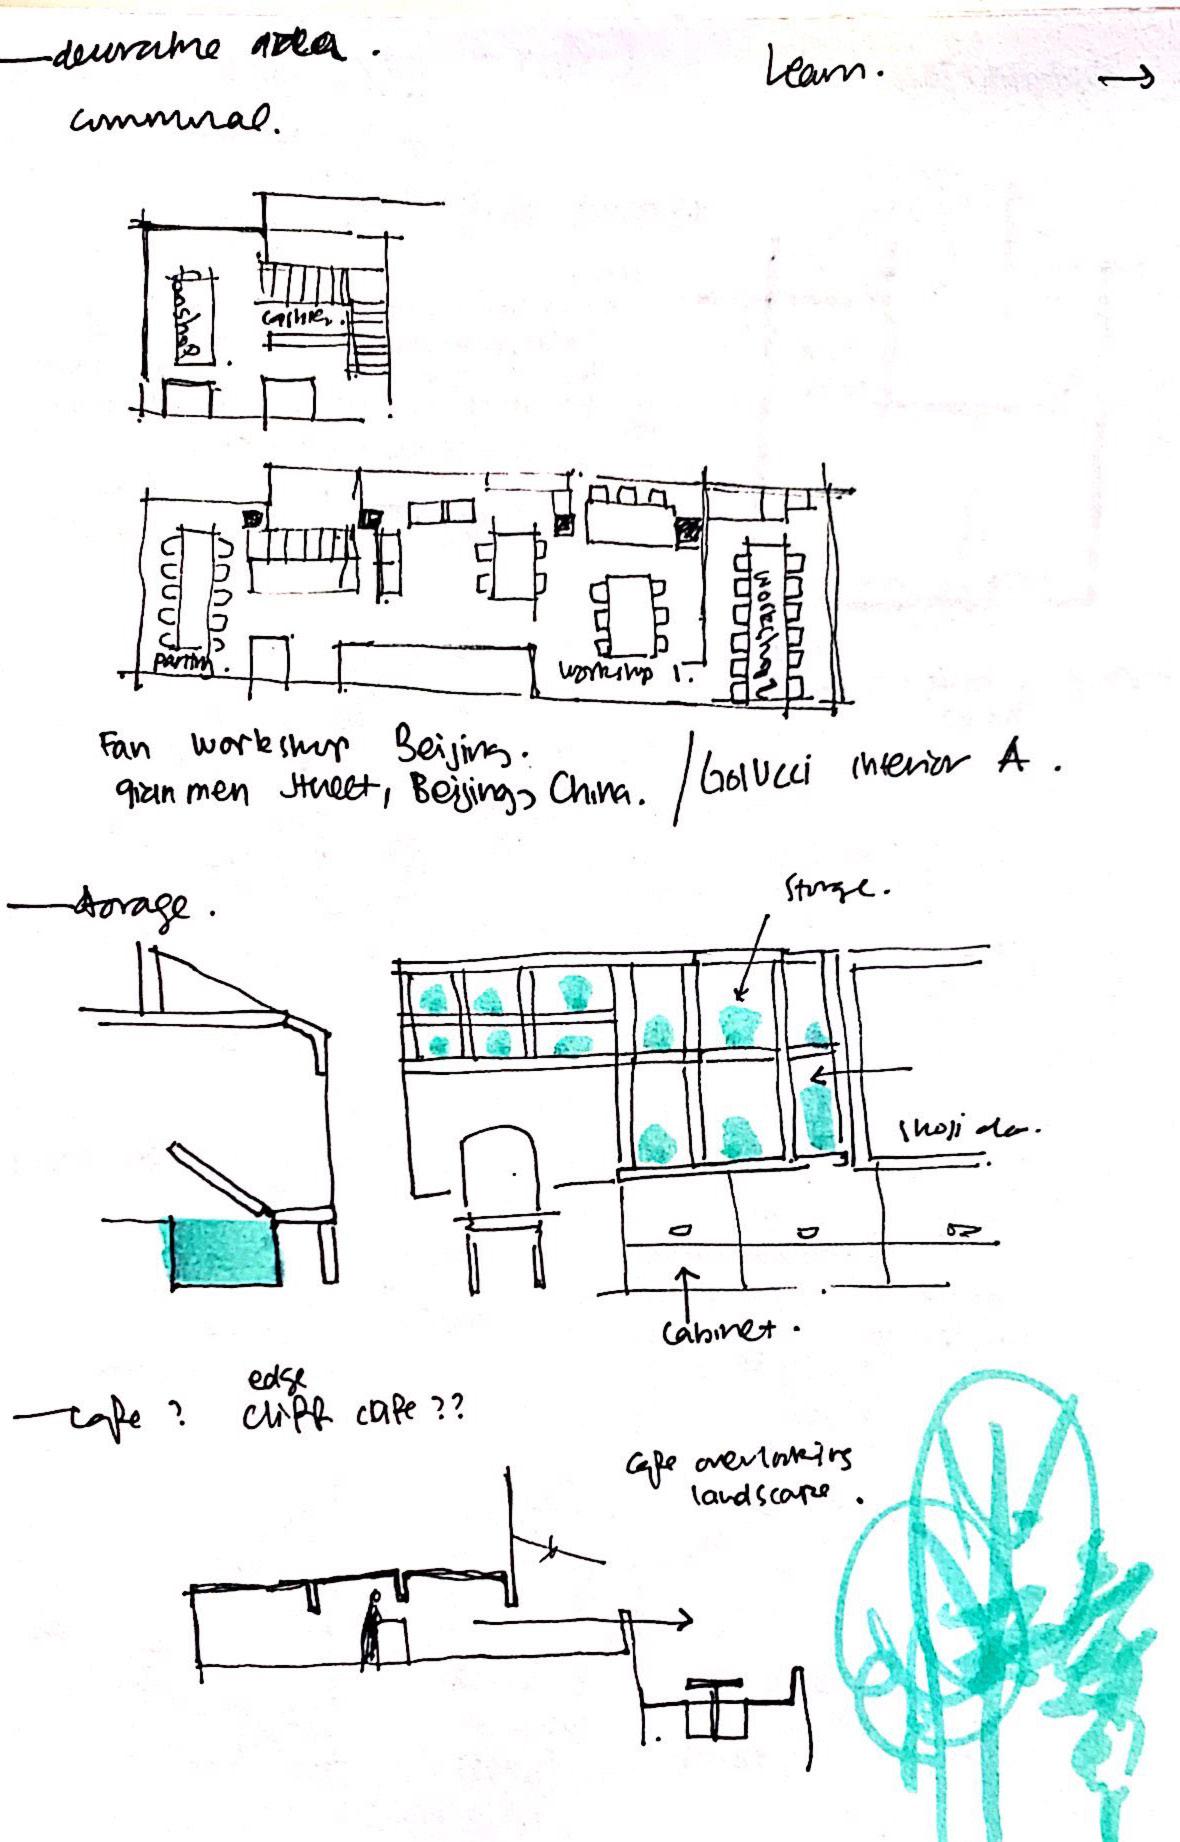 decorative area.
communal.
Learn.
cashier.
workshop 1.
workshop 2
Fan workshop Beijing.
qianmen street, Beijing, China.
/ Golucci interior A.
storage.
storage.
shoji
cabinet.
cafe ?
edge
cliff cafe ??
cafe overlooking
landscape.